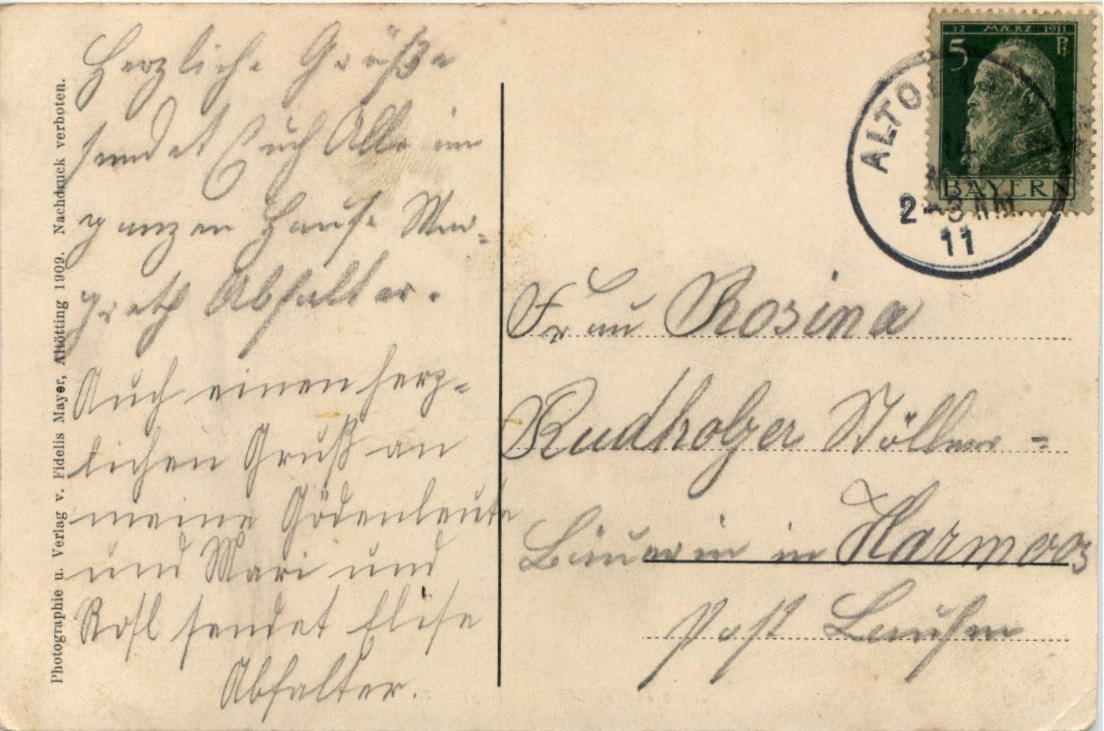 Photographie u. Verlag v. Fidelis Mayer, Altötting 1909. Nachdruck verboten.
Herzliche Grüße
sendet Euch Alle im
ganzen Hause Mar-
greth Abfalter.
Auch einen herz-
lichen Gruß an
meine Gödenleute
und Mari und
Rosl sendet Elise
Abfalter.
12 MÆRZ 1911
5 Pf
BAYERN
ALTO
2-3 NM.
11
Frau Rosina
Rudholzer
Bäuerin in Harmoos
Post Laufen